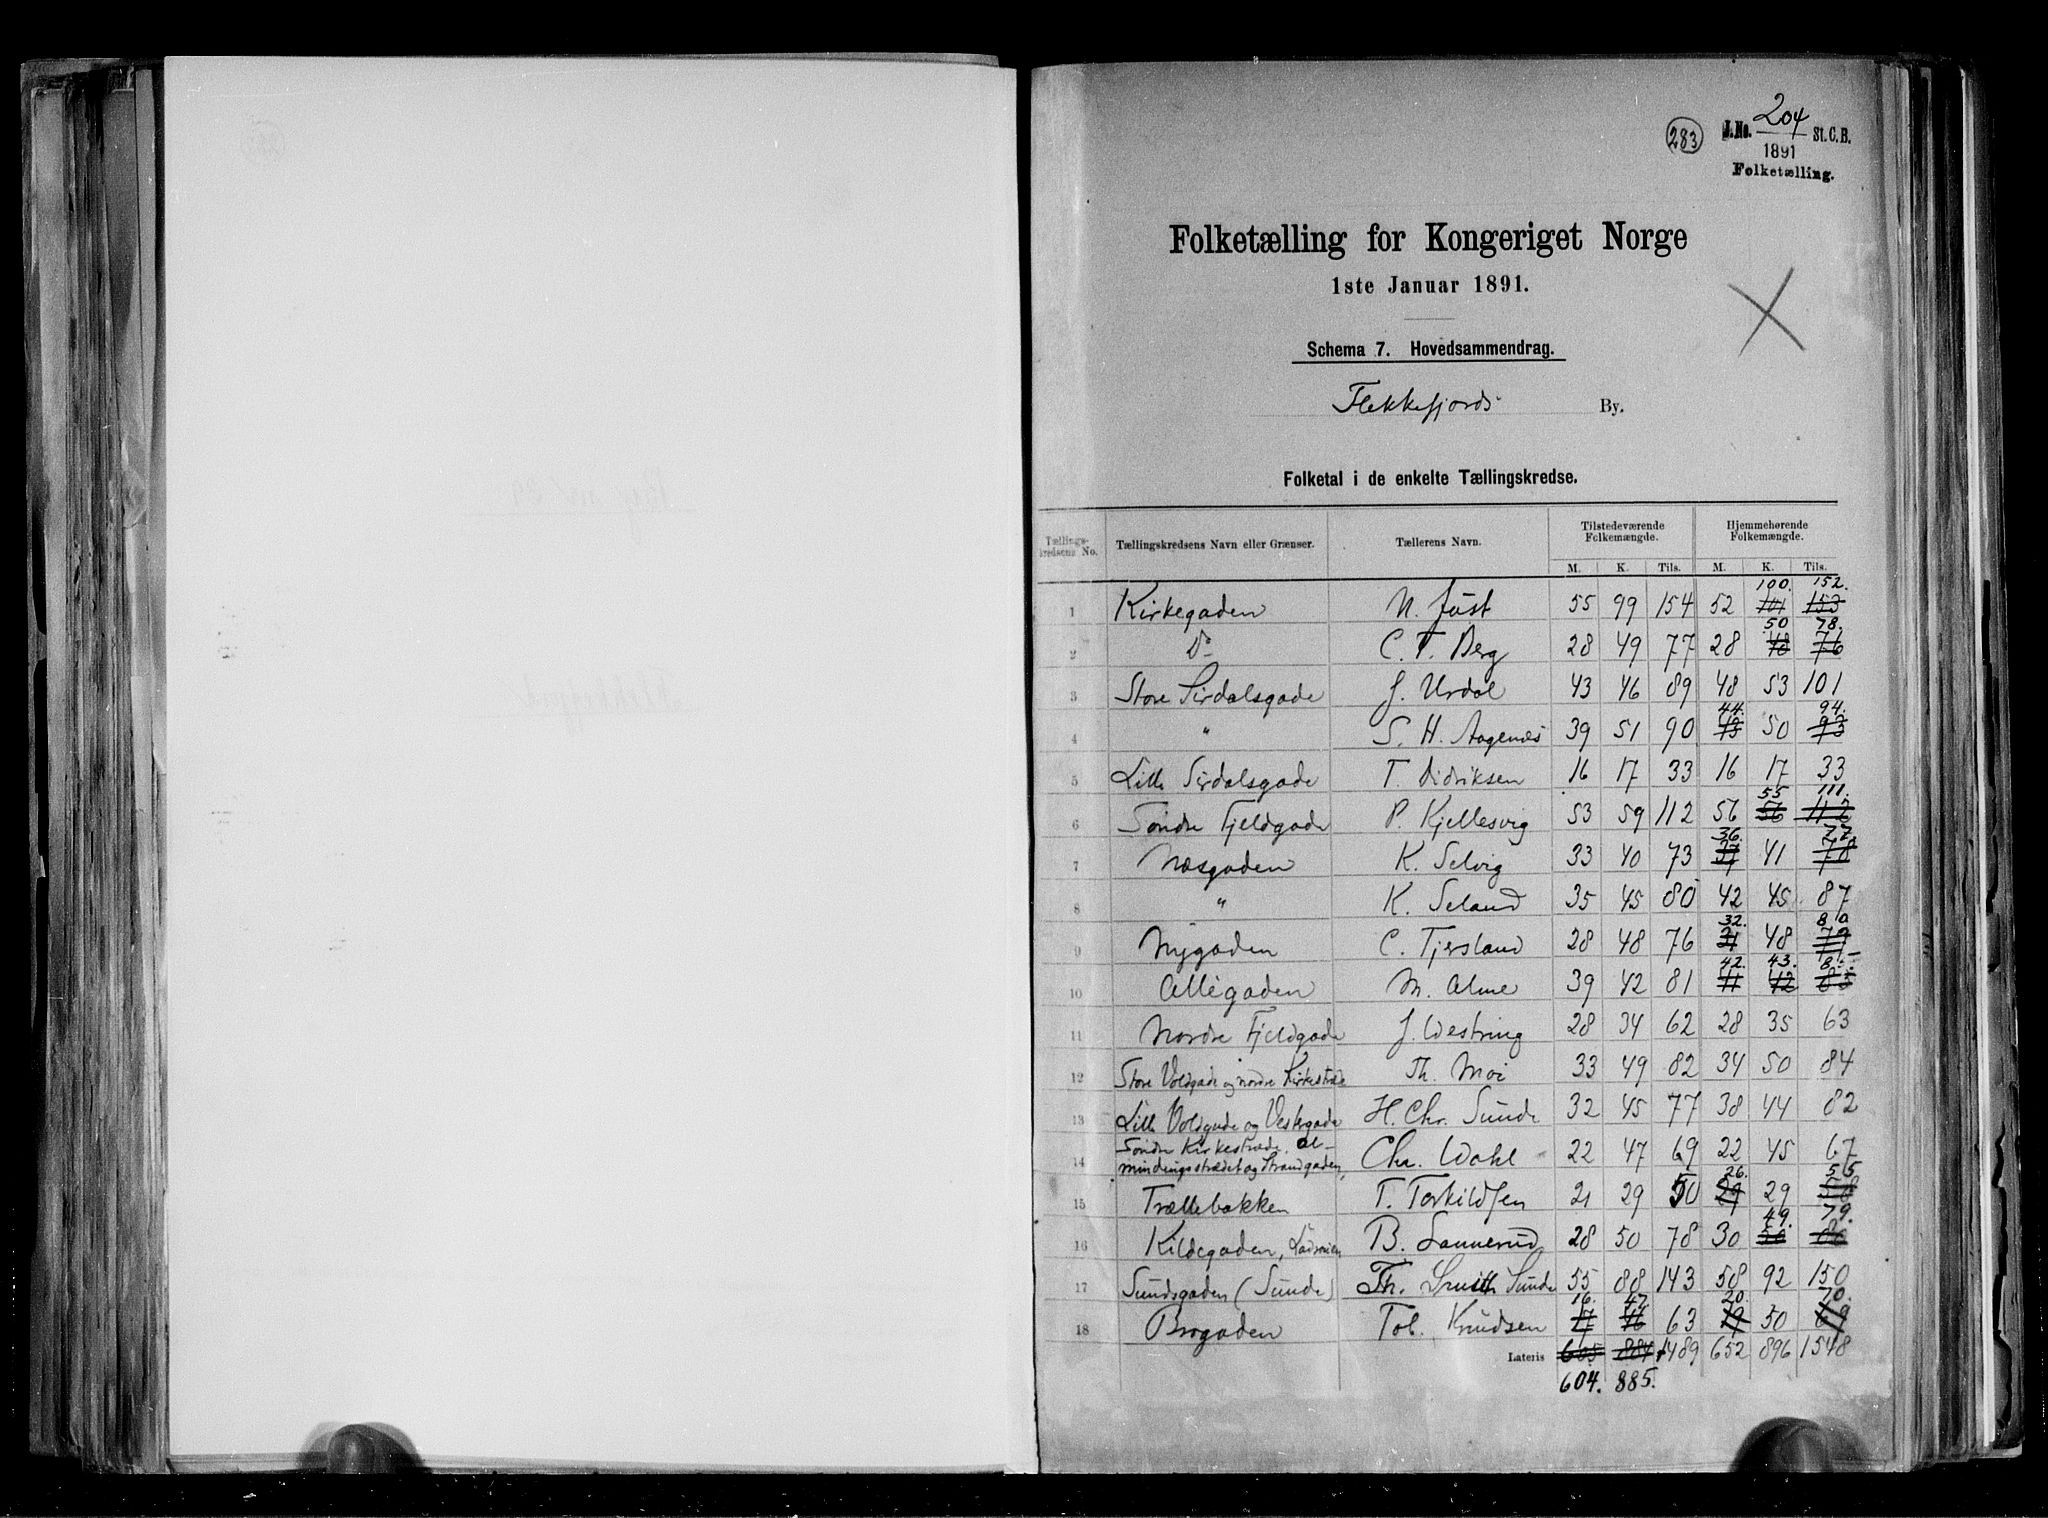 283
J. No. 204 St. C. B.
1891
Folketælling.
Folketælling for Kongeriget Norge
1ste Januar 1891.
Schema 7. Hovedsammendrag.
Flekkefjords By.
Folketal i de enkelte Tællingskredse.
Tællings-kredsens No. Tællingskredsens Navn eller Grænser. Tællerens Navn. Tilstedeværende Folkemængde. Hjemmehørende Folkemængde.
M. K. Tils. M. K. Tils.
100. 152.
1 Kirkegaden N. Just 55 99 154 52 101 153
50 78.
2 Do C. T. Berg 28 49 77 28 48 76
3 Store Sirdalsgade J. Urdal 43 46 89 48 53 101
44. 94.
4 " S. H. Aagenæs 39 51 90 43 50 93
5 Lille Sirdalsgade T. Didriksen 16 17 33 16 17 33
55 111.
6 Søndre Fjeldgade P. Kjellesvig 53 59 112 56 56 112
36. 77.
7 Næsgaden K. Selvig 33 40 73 37 41 78
8 " K. Seland 35 45 80 42 45 87
32. 80
9 Nygaden C. Tjersland 28 48 76 31 48 79
42. 43. 85
10 Allégaden M. Alme 39 42 81 41 42 83
11 Nordre Fjeldgade J. Westring 28 34 62 28 35 63
12 Store Voldgade og nordre Kirkestræde Th. Moi 33 49 82 34 50 84
13 Lille Voldgade og Vestergade H. Chr. Sunde 32 45 77 38 44 82
Søndre Kirkestræde, Al-
14 mindingsstrædet og Strandgaden, Chr. Wahl 22 47 69 22 45 67
26. 55
15 Trællebakken T. Torkildsen 21 29 50 29 29 58
49. 79.
16 Kildegaden, B. Sannerud 28 50 78 30 50 80
17 Sundsgaden (Sunde) Th. Smith Sunde 55 88 143 58 92 150
16. 47. 20. 70.
18 Brogaden Tob. Knudsen 17 46 63 19 50 69
Lateris 605 884 1489 652 896 1548
604. 885.